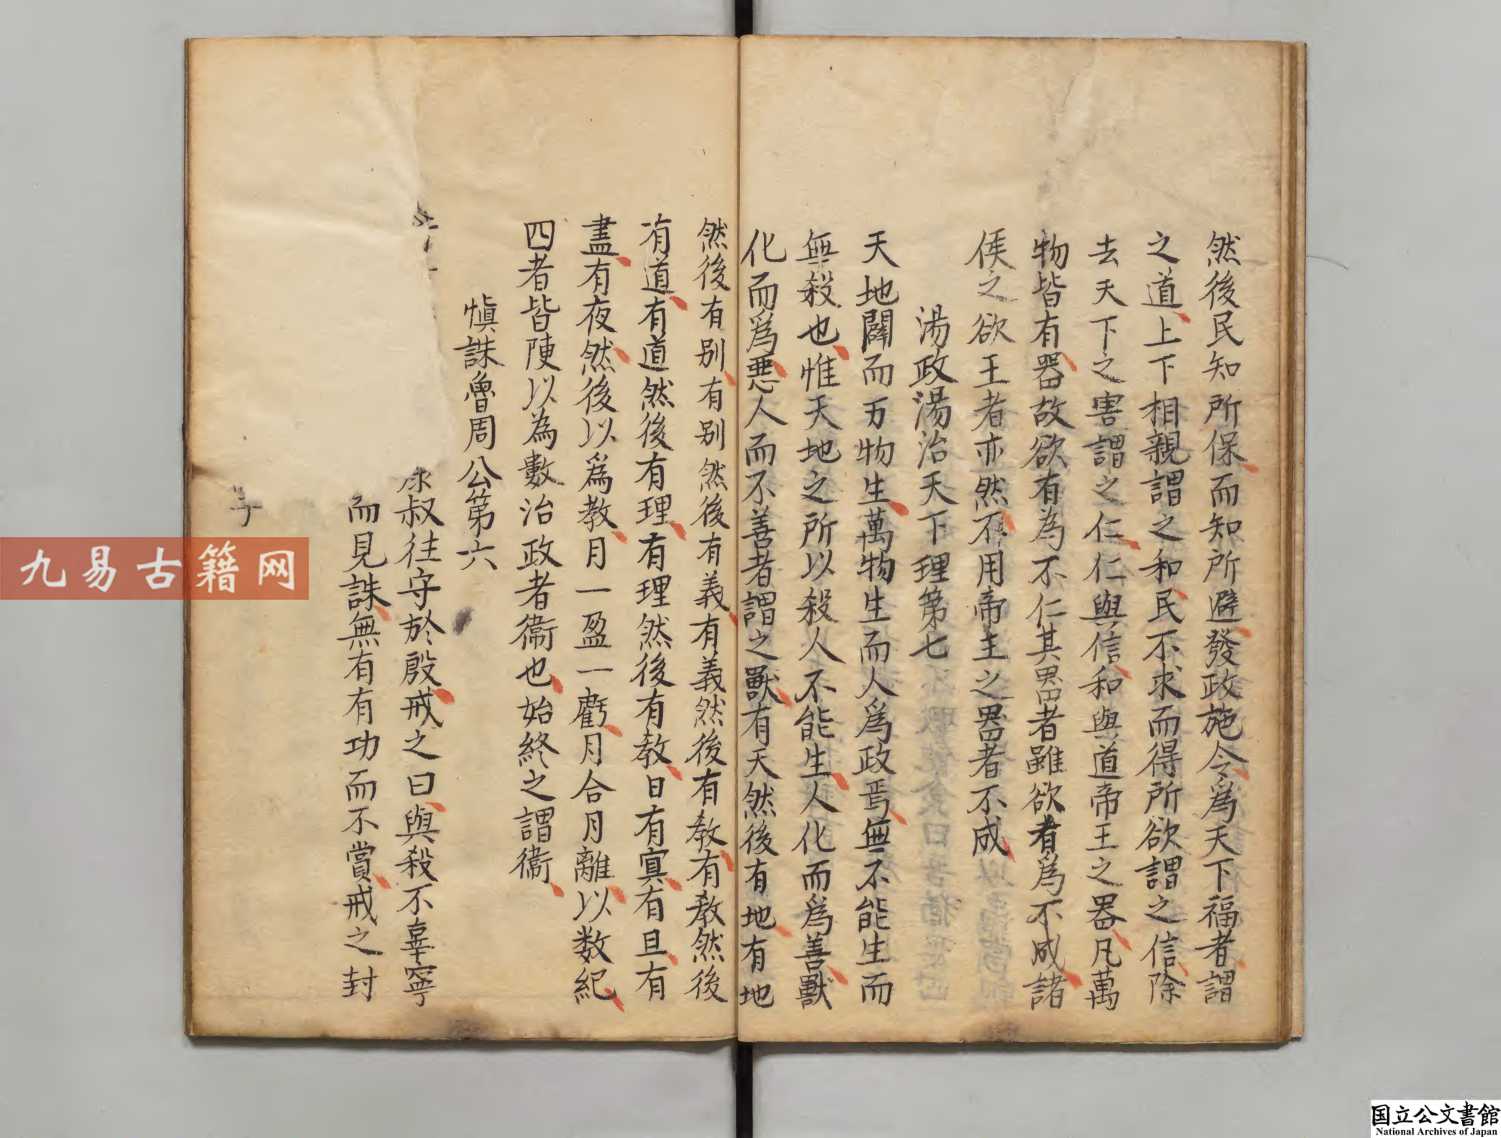 然後民知所保而知所避發政施令為天下福者謂
之道上下相親謂之和民不求而得所欲謂之信除
去天下之害謂之仁仁與信和與道帝王之器凡萬
物皆有器故欲有為不仁其噐者雖欲者為不成諸
侯之欲王者亦然不用帝王之器者不成
湯政湯治天下理第七
天地闢而万物生萬物生而人爲政焉無不能生而
無殺也惟天地之所以殺人不能生人化而爲善獸
化而爲惡人而不善者謂之獸有天然後有地有地
然後有别有别然後有義有義然後有教有教然後
有道有道然後有理有理然後有教日有寘有旦有
盡有夜然後以爲教月一盈一虧月合月離以数紀
四者皆陳以為數治政者衞也始終之謂衞
慎誅魯周公第六
叔往守於殷戒之曰與殺不辜寧
而見誅無有有功而不賞戒之封
九易古籍网
国立公文書館
National Archives of Japan